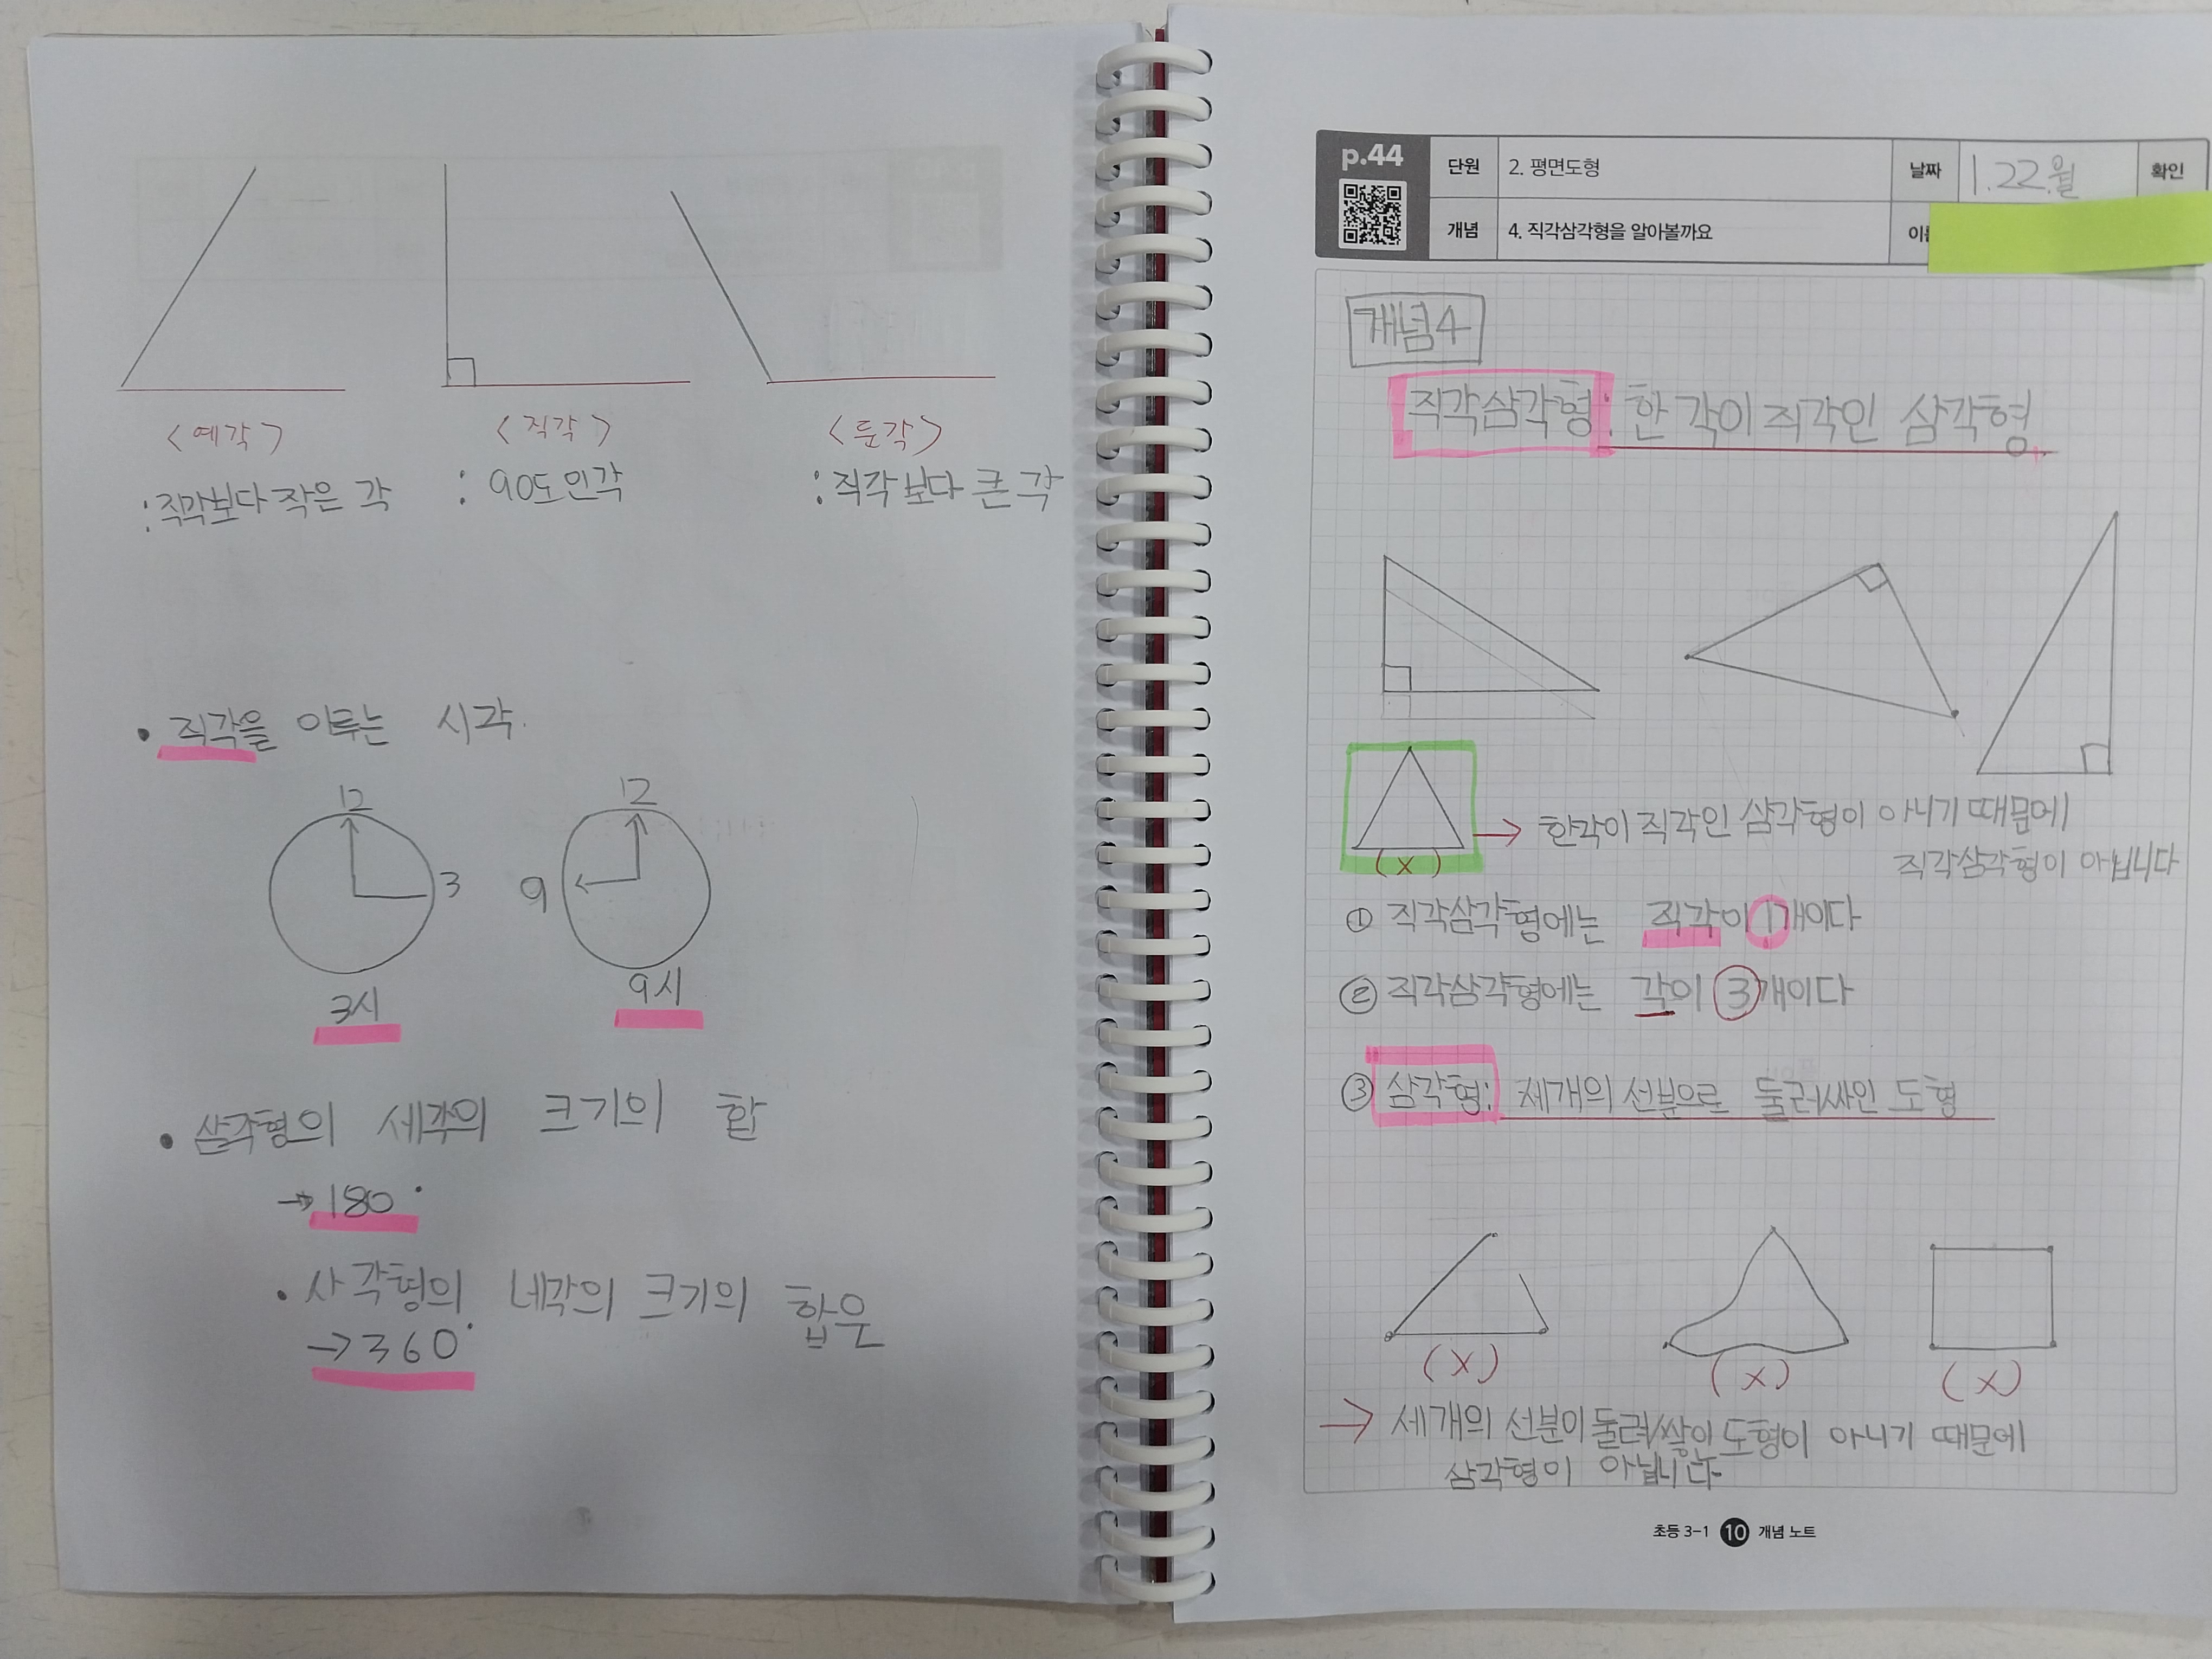 <예각>
<직각>
<둔각>
: 직각보다 작은 각
: 90도인각
: 직각보다 큰 각
• 직각을 이루는 시각.
12
3
3시
12
9
9시
• 삼각형의 세각의 크기의 합
→ 180°
• 사각형의 네각의 크기의 합은
→ 360°
p.44
단원
2. 평면도형
날짜
1.22.월
확인
개념
4. 직각삼각형을 알아볼까요
개념4
직각삼각형: 한 각이 직각인 삼각형.
(X)
→ 한각이 직각인 삼각형이 아니기 때문에
직각삼각형이 아닙니다
① 직각삼각형에는 직각이 1개이다
② 직각삼각형에는 각이 3개이다
③ 삼각형: 세개의 선분으로 둘러싸인 도형
(X)
(X)
(X)
→ 세개의 선분이 둘러쌓인 도형이 아니기 때문에
삼각형이 아닙니다
초등 3-1 10 개념 노트